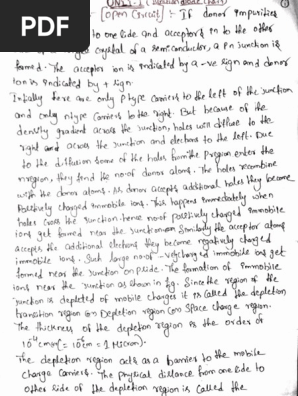 PDF
(Open Circuit) :- If donor impurities
to one side and acceptors in to the other
crystal of a Semiconductor, a Pn junction is
formed. The acceptor ion is indicated by a -ve sign and donor
ion is indicated by + sign.
Initially here are only P type carriers to the left of the junction
and only n type carriers to the right. But because of the
density gradient across the junction, holes will diffuse to the
right and across the junction and electrons to the left. Due
to the diffusion some of the holes from the P region enter the
n region, they find the no. of donor atoms. The holes recombine
with the donor atoms. As donor accepts additional holes they become
Positively charged immobile ions. This happens immediately when
holes cross the junction. hence no. of positively charged immobile
ions get formed near the junction on Similarly the acceptor atoms
accepts the additional electrons they become negatively charged
immobile ions. Such large no. of -vely charged immobile ions get
formed near the junction on P side. The formation of immobile
ions near the junction as shown in fig. Since the region of the
junction is depleted of mobile charges it is called the depletion
transition region (or) Depletion region (or) Space charge region.
The thickness of the depletion region is the order of
The depletion region acts as a barrier to the mobile
charge carriers. The physical distance from one side to
other side of the depletion region is called the